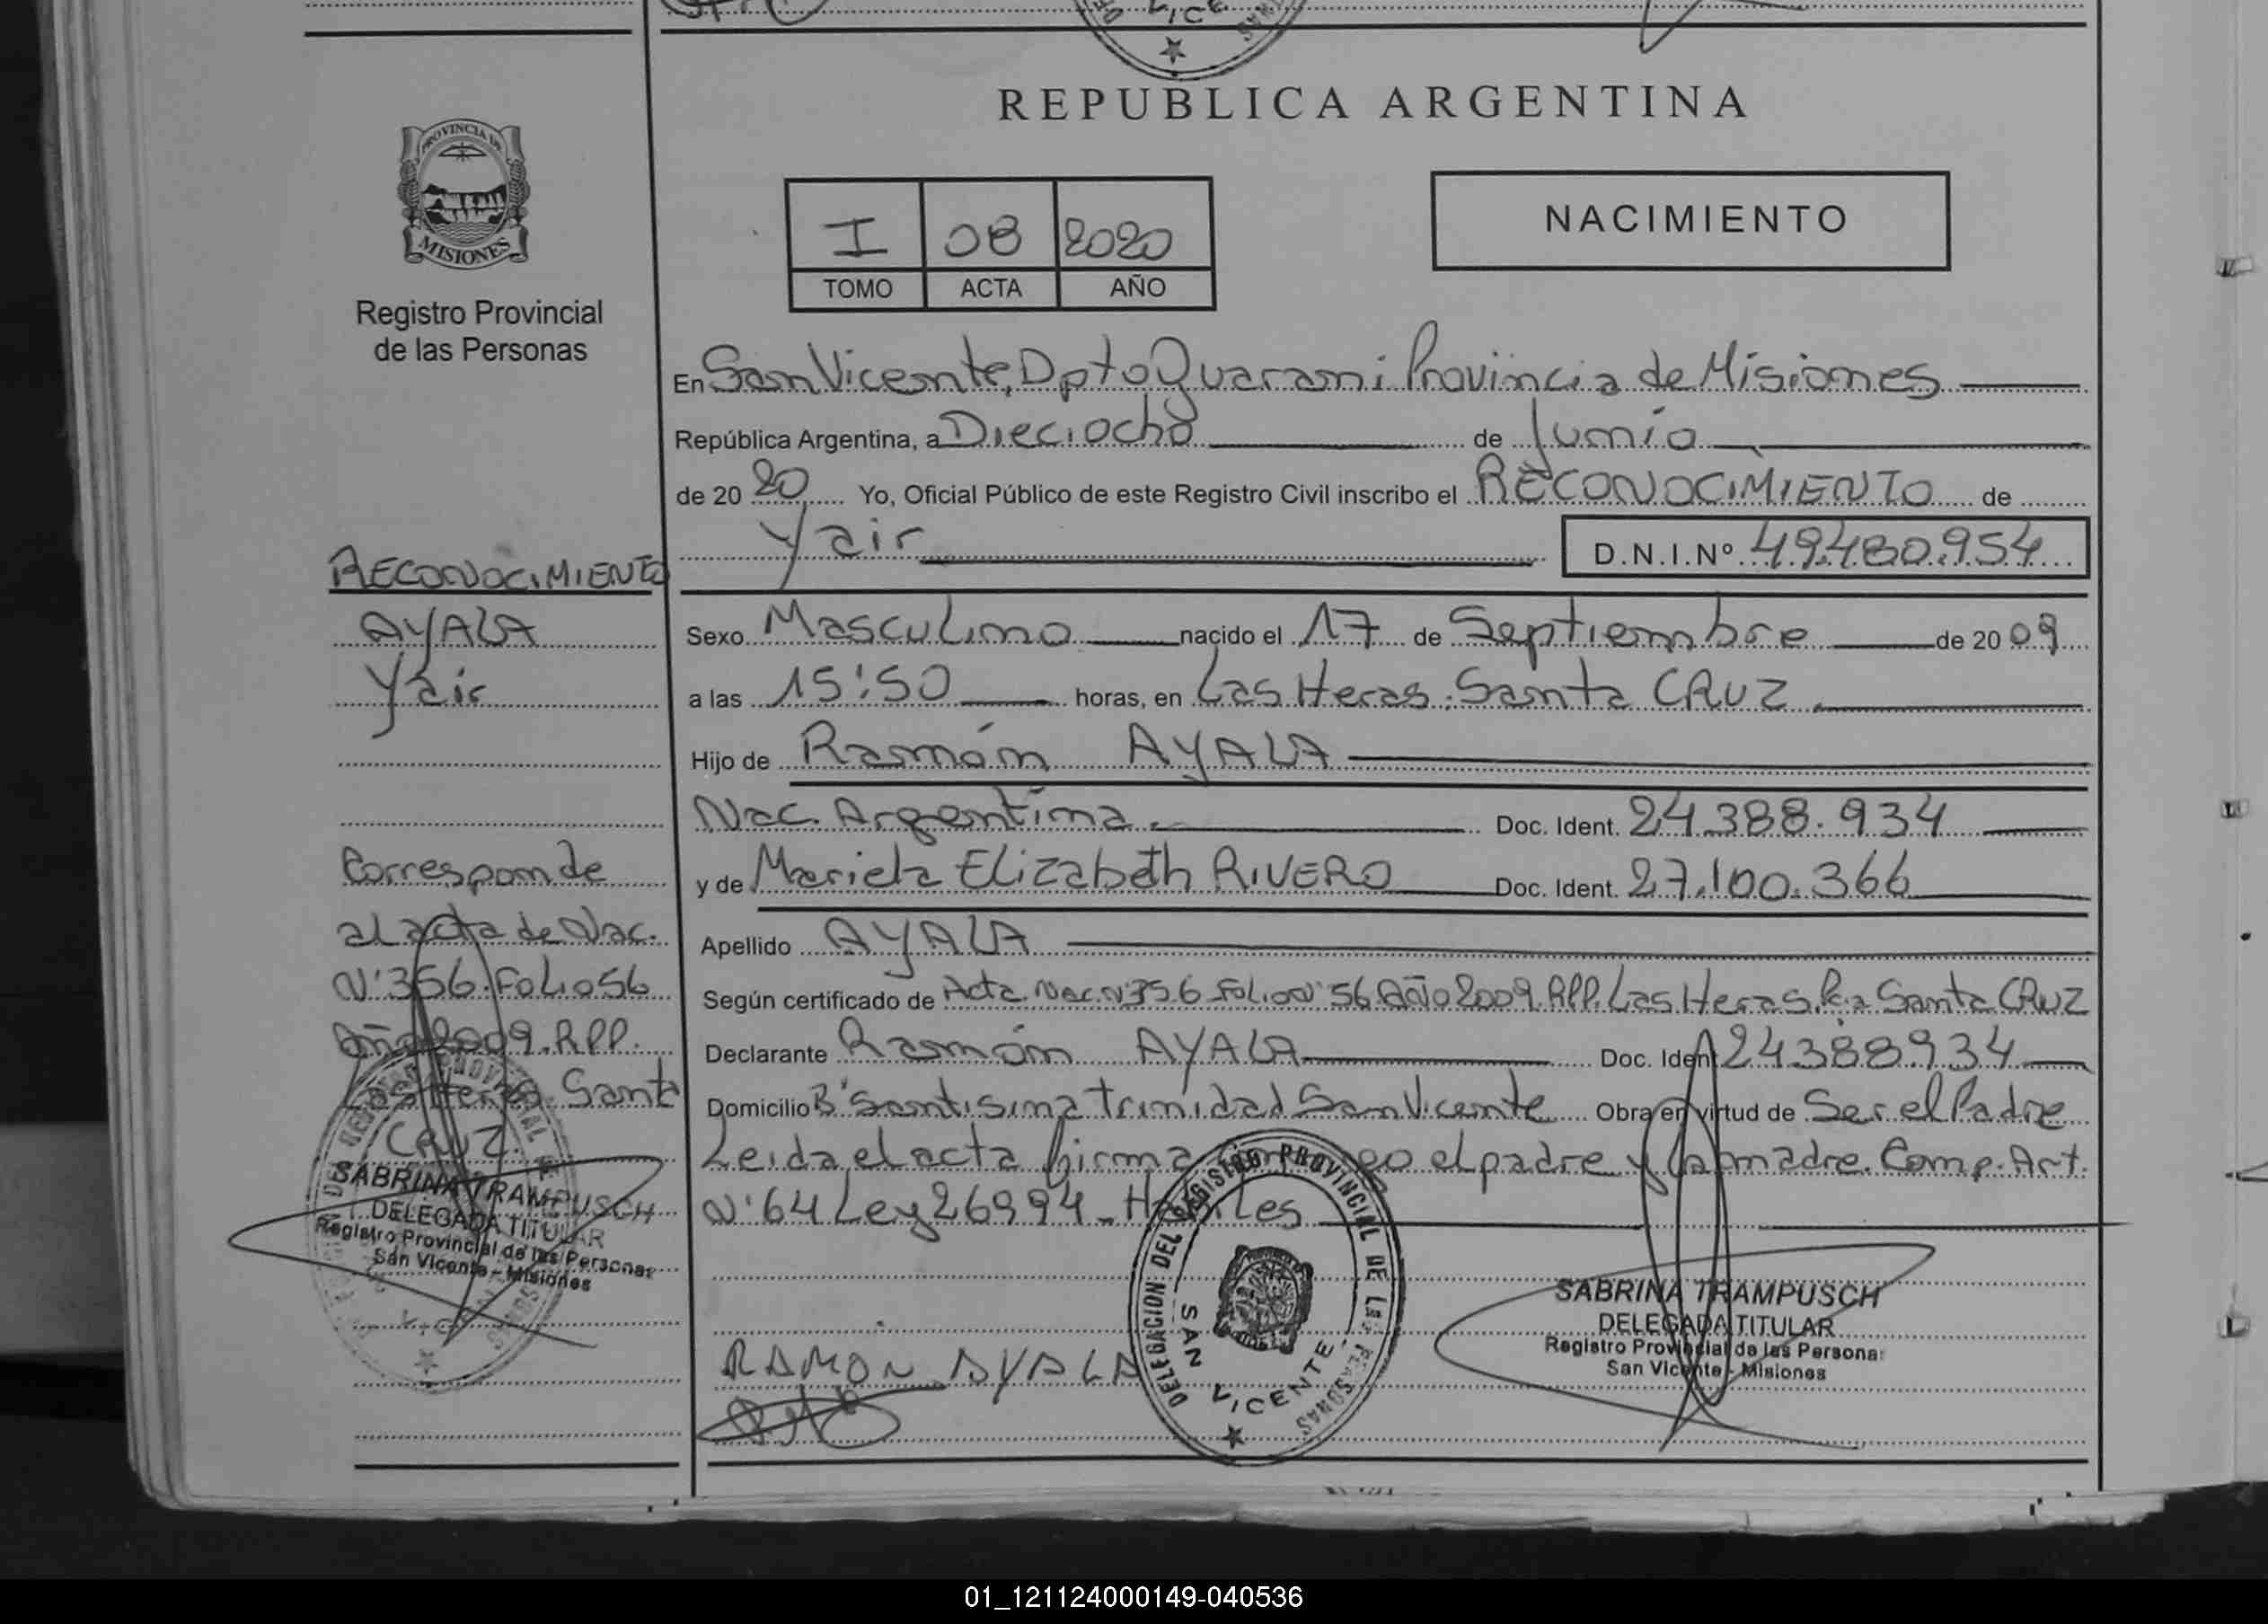 VICE
REPUBLICA ARGENTINA
PROVINCIA DE
MISIONES
Registro Provincial
de las Personas
I 08 2020
TOMO ACTA AÑO
NACIMIENTO
En San Vicente, Dpto Guarani Provincia de Misiones
República Argentina, a Dieciocho de Junio
de 20 20 Yo, Oficial Público de este Registro Civil inscribo el RECONOCIMIENTO de
Yair D.N.I.Nº 49.480.954
Sexo Masculino nacido el 17 de Septiembre de 20 09
a las 15:50 horas, en Las Heras. Santa CRUZ
Hijo de Ramón AYALA
Nac. Argentina. Doc. Ident. 24.388.934
y de Mariela Elizabeth RIVERO Doc. Ident. 27.100.366
Apellido AYALA
Según certificado de Acta Nac. Nº356 Folio Nº56 Año 2009. RPP. Las Heras. Pcia Santa CRUZ
Declarante Ramón AYALA Doc. Ident. 24388934
Domicilio Bº Santisima Trinidad San Vicente Obra en virtud de Ser el Padre
Leida el acta firma conmigo el padre y la madre. Comp. Art.
Nº 64 Ley 26994 - Habiles
RAMON AYALA
DELEGACION DEL REGISTRO PROVINCIAL DE LAS PERSONAS
SAN VICENTE
SABRINA TRAMPUSCH
DELEGADA TITULAR
Registro Provincial de las Personas
San Vicente - Misiones
RECONOCIMIENTO
AYALA
Yair
Corresponde
al acta de Nac.
Nº 356. Folio 56
Año 2009. RPP.
Las Heras Santa
CRUZ.
SABRINA TRAMPUSCH
DELEGADA TITULAR
Registro Provincial de las Personas
San Vicente - Misiones
01_121124000149-040536